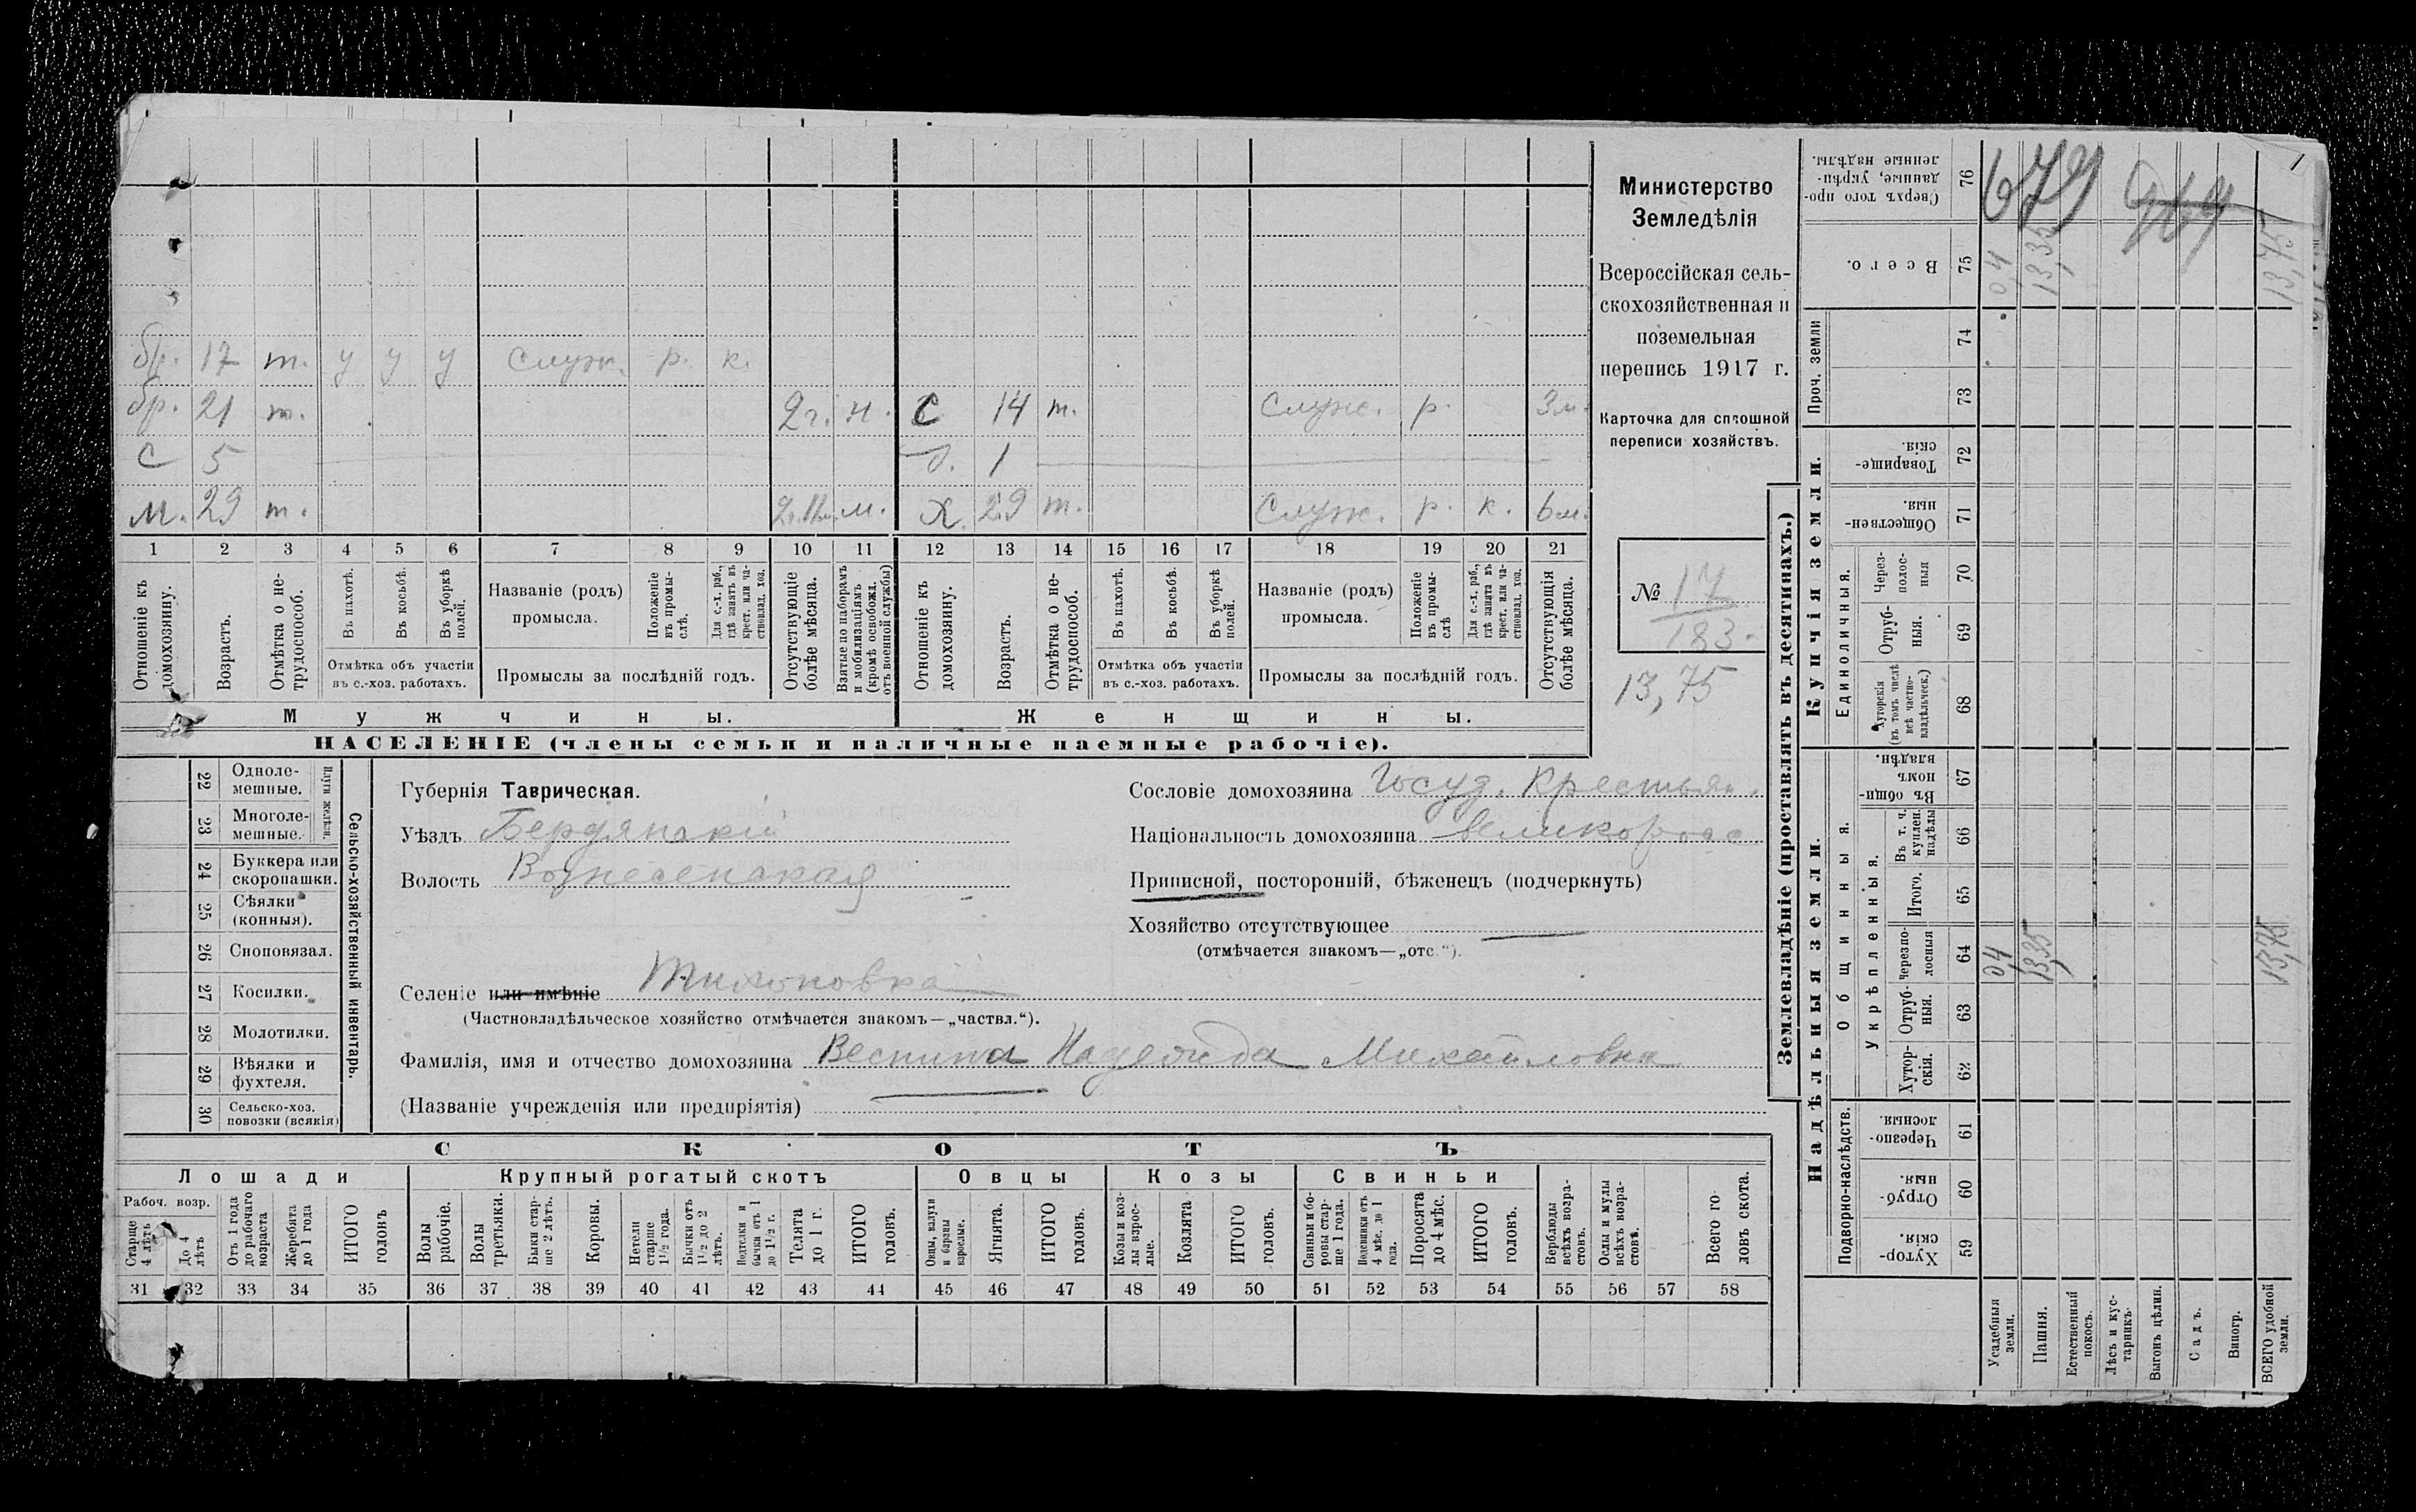 бр. 17 т. у у у служ. р. к.
бр. 21 т. 2 г. н. С 14 т. служ. р. 3 м.
С 5 д. 1
м. 29 т. м. Х. 29 т. служ. р. к. 6 м.
1 2 3 4 5 6 7 8 9 10 11 12 13 14 15 16 17 18 19 20 21
Отношеніе къ домохозяину.
Возрастъ.
Отмѣтка о нетрудоспособ.
Въ пахотѣ.
Въ косьбѣ.
Въ уборкѣ полей.
Отмѣтка объ участіи
въ с.-хоз. работахъ.
Названіе (родъ)
промысла.
Положеніе въ промыслѣ.
Для с.-х. раб., гдѣ занятъ въ крест. или частновлад. хоз.
Промыслы за послѣдній годъ.
Отсутствующіе болѣе мѣсяца.
Взятые по наборамъ и мобилизаціямъ (кромѣ освобожд. отъ военной службы)
Отношеніе къ домохозяину.
Возрастъ.
Отмѣтка о нетрудоспособ.
Въ пахотѣ.
Въ косьбѣ.
Въ уборкѣ полей.
Отмѣтка объ участіи
въ с.-хоз. работахъ.
Названіе (родъ)
промысла.
Положеніе въ промыслѣ
Для с.-х. раб., гдѣ занята въ крест. или частновлад. хоз.
Промыслы за послѣдній годъ.
Отсутствующія болѣе мѣсяца.
Мужчины. Женщины.
НАСЕЛЕНІЕ (члены семьи и наличные наемные рабочіе).
Министерство
Земледѣлія
Всероссійская сель-
скохозяйственная и
поземельная
перепись 1917 г.
Карточка для сплошной
переписи хозяйствъ.
№ 17
183
13,75
22 Одноле-
мешные.
23 Многоле-
мешные.
Плуги желѣзн.
24 Буккера или
скоропашки.
25 Сѣялки
(конныя).
26 Сноповязал.
27 Косилки.
28 Молотилки.
29 Вѣялки и
фухтеля.
30 Сельско-хоз.
повозки (всякія)
Сельско-хозяйственный инвентарь.
Губернія Таврическая.
Уѣздъ Бердянскій
Волость Вознесенская
Селеніе или имѣніе Тихоновка
(Частновладѣльческое хозяйство отмѣчается знакомъ—„частвл.“).
Фамилія, имя и отчество домохозяина Веснина Надежда Михайловна
(Названіе учрежденія или предпріятія)
Сословіе домохозяина Госуд. Крестьян.
Національность домохозяина великоросс
Приписной, посторонній, бѣженецъ (подчеркнуть)
Хозяйство отсутствующее —
(отмѣчается знакомъ—„отс.“).
СКОТЪ
Лошади Крупный рогатый скотъ Овцы Козы Свиньи
Рабоч. возр.
Старше 4 лѣтъ
До 4 лѣтъ
Отъ 1 года до рабочаго возраста
Жеребята до 1 года
ИТОГО головъ
Волы рабочіе.
Волы третьяки.
Быки старше 2 лѣтъ.
Коровы.
Нетели старше 1½ года.
Бычки отъ 1½ до 2 лѣтъ.
Подтелки и бычки отъ 1 до 1½ г.
Телята до 1 г.
ИТОГО головъ.
Овцы, валухи и бараны взрослые.
Ягнята.
ИТОГО головъ.
Козы и козлы взрослые.
Козлята
ИТОГО головъ.
Свиньи и боровы старше 1 года.
Подсвинки отъ 4 мѣс. до 1 года.
Поросята до 4 мѣс.
ИТОГО головъ.
Верблюды всѣхъ возрастовъ.
Ослы и мулы всѣхъ возрастовъ.
Всего головъ скота.
31 32 33 34 35 36 37 38 39 40 41 42 43 44 45 46 47 48 49 50 51 52 53 54 55 56 57 58
Землевладѣніе (проставлять въ десятинахъ.)
Надѣльныя земли. Купчія земли. Проч. земли
Подворно-наслѣдств. Общинныя. Укрѣпленныя. Единоличныя.
Сверхъ того проданные, укрѣпленные надѣлы. 76 679
Всего. 75 0,4 13,35 13,75
74
73
Товарищескія. 72
Общественныя. 71
Черезполосныя 70
Отрубныя. 69
Хуторскія (въ томъ числѣ всѣ частновладѣльческ.) 68
Въ общинномъ владѣн. 67
Въ т. ч. куплен. надѣлы 66
Итого. 65
Черезполосныя 64 04 13,35 13,75
Отрубныя. 63
Хуторскія. 62
Черезполосныя. 61
Отрубныя. 60
Хуторскія. 59
Усадебныя земли.
Пашня.
Естественный покосъ.
Лѣсъ и кустарникъ.
Выгонъ цѣлин.
Садъ.
Виногр.
ВСЕГО удобной земли.